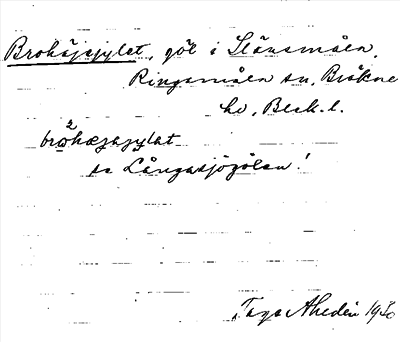 Brohöjsjylet, göl i Slänsmåla,
Ringamåla sn, Bräkne
hd, Blek. l.
bro2hæjsjylat
se Långasjögölen!
Tage Ahldén 1930